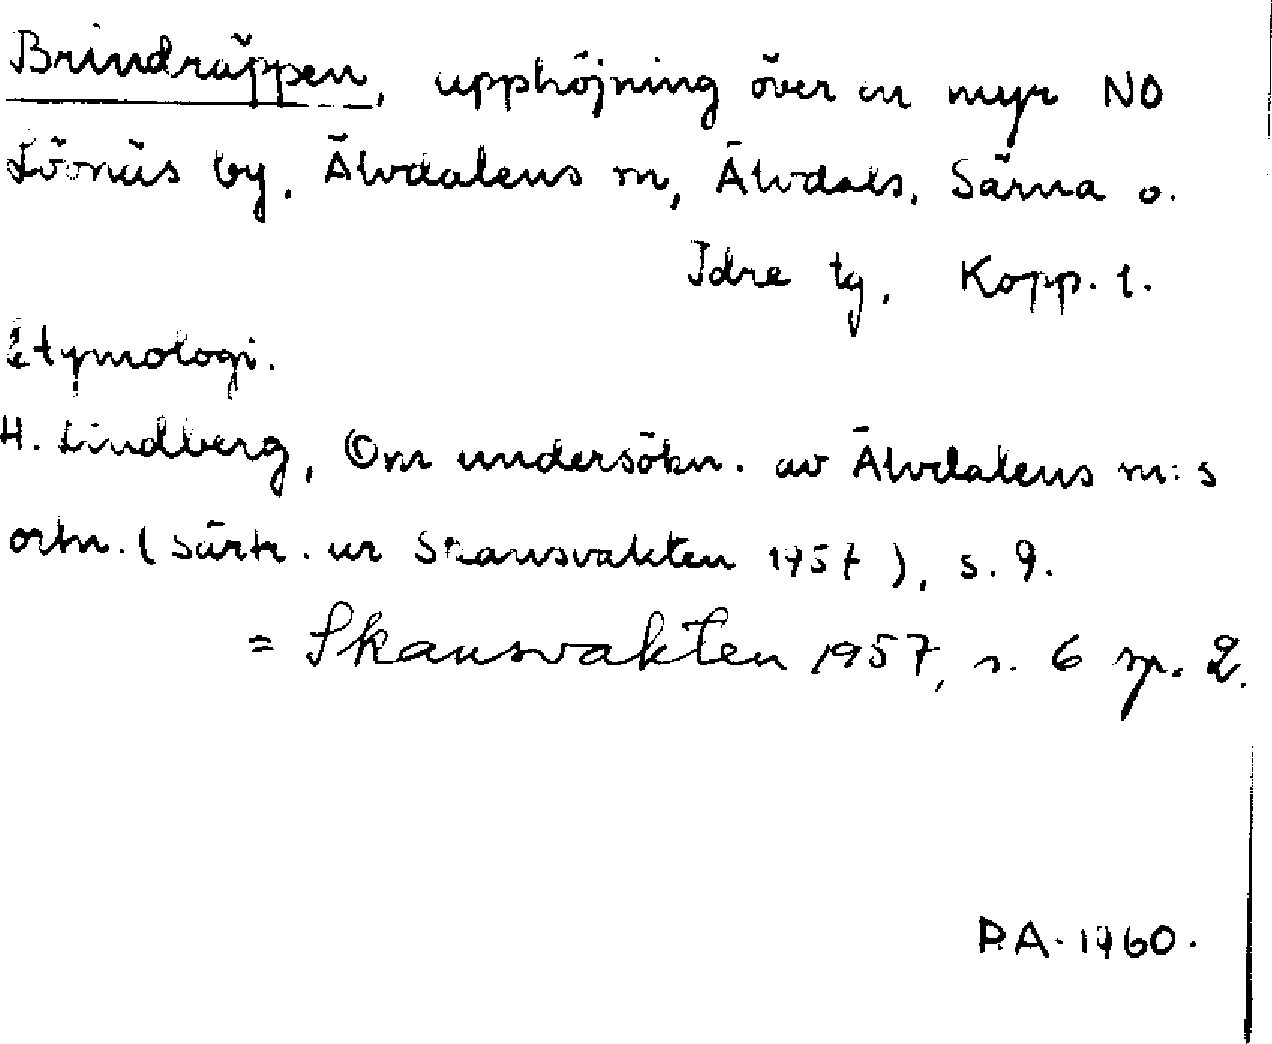 Brindräppen, upphöjning över en myr NO
Lövnäs by, Älvdalens sn, Älvdals, Särna o.
Idre tg, Kopp. l.
Etymologi.
H. Lindberg, Om undersökn. av Älvdalens sn:s
ortn. (Särtr. ur Skansvakten 1957), s. 9.
= Skansvakten 1957, s. 6 sp. 2.
RA. 1960.